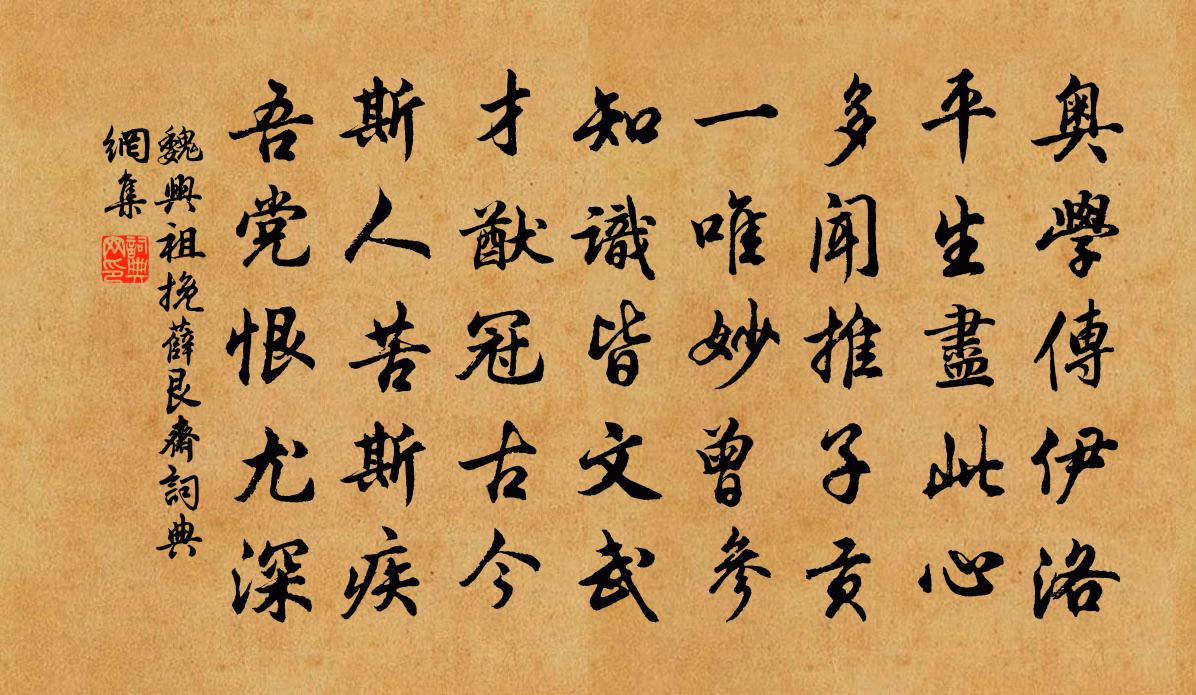 奧學傳伊洛
平生盡此心
多闻推子贡
一唯妙曾參
知識皆文武
才猷冠古今
斯人苦斯疾
吾党恨尤深
魏興祖挽薛艮齋詞典
網集
詞典
网印